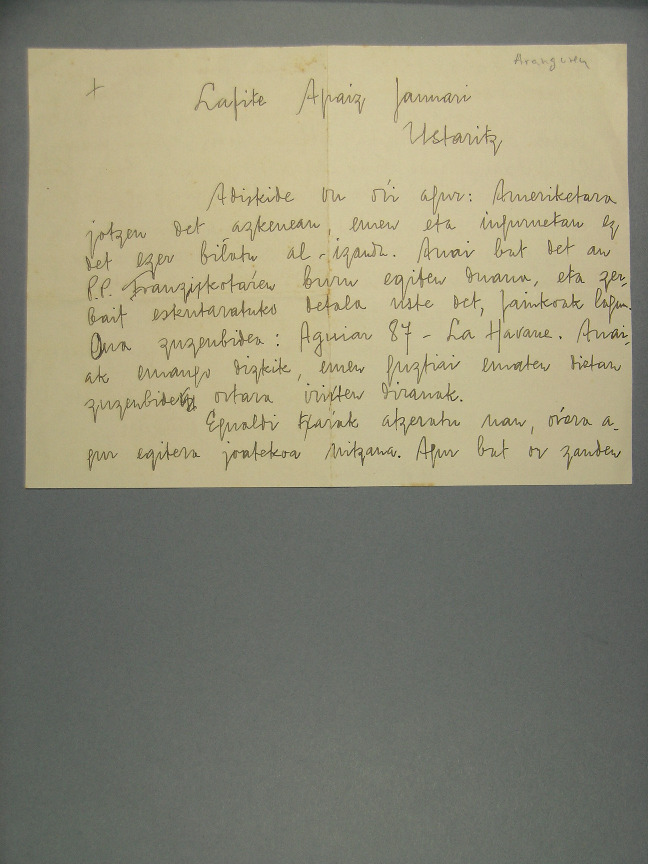 Aranguren
+
Lafite Apaiz Jaunari
Ustaritz
Adiskide on ori agur: Ameriketara
jotzen det azkenean, emen eta ingurnetan ez
det ezer billatu al-izandu. Anai bat det an
P.P. Franzizkotaŕen buru egiten duana, eta zer-
bait eskuratuko detala uste det, Jainkoak lagun.
Ona zuzenbidea: Aguiar 87 - La Havane. Anai-
ak emango dizkik, emen guztiai ematen dietan
zuzenbidera ortara iristen diranak.
Egualdi txaŕak atzeratu nau, oŕera a-
gur egitera joatekoa nitzana. Agur bat or zauden